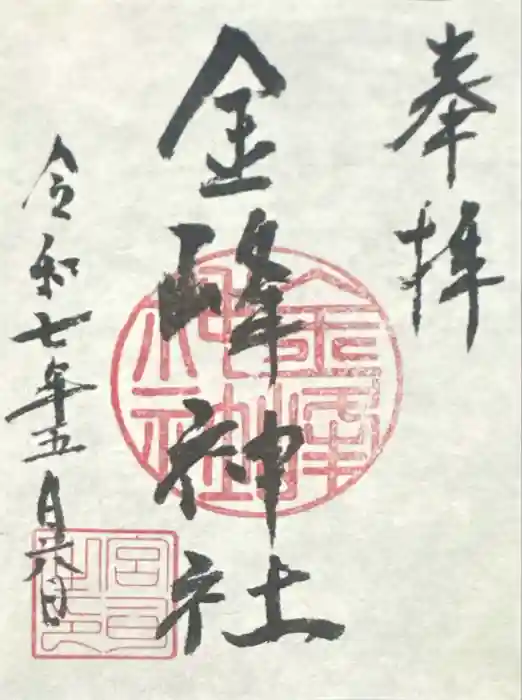 奉拝
金峰神社
令和七年五月六日
金峰神社
宮司之印